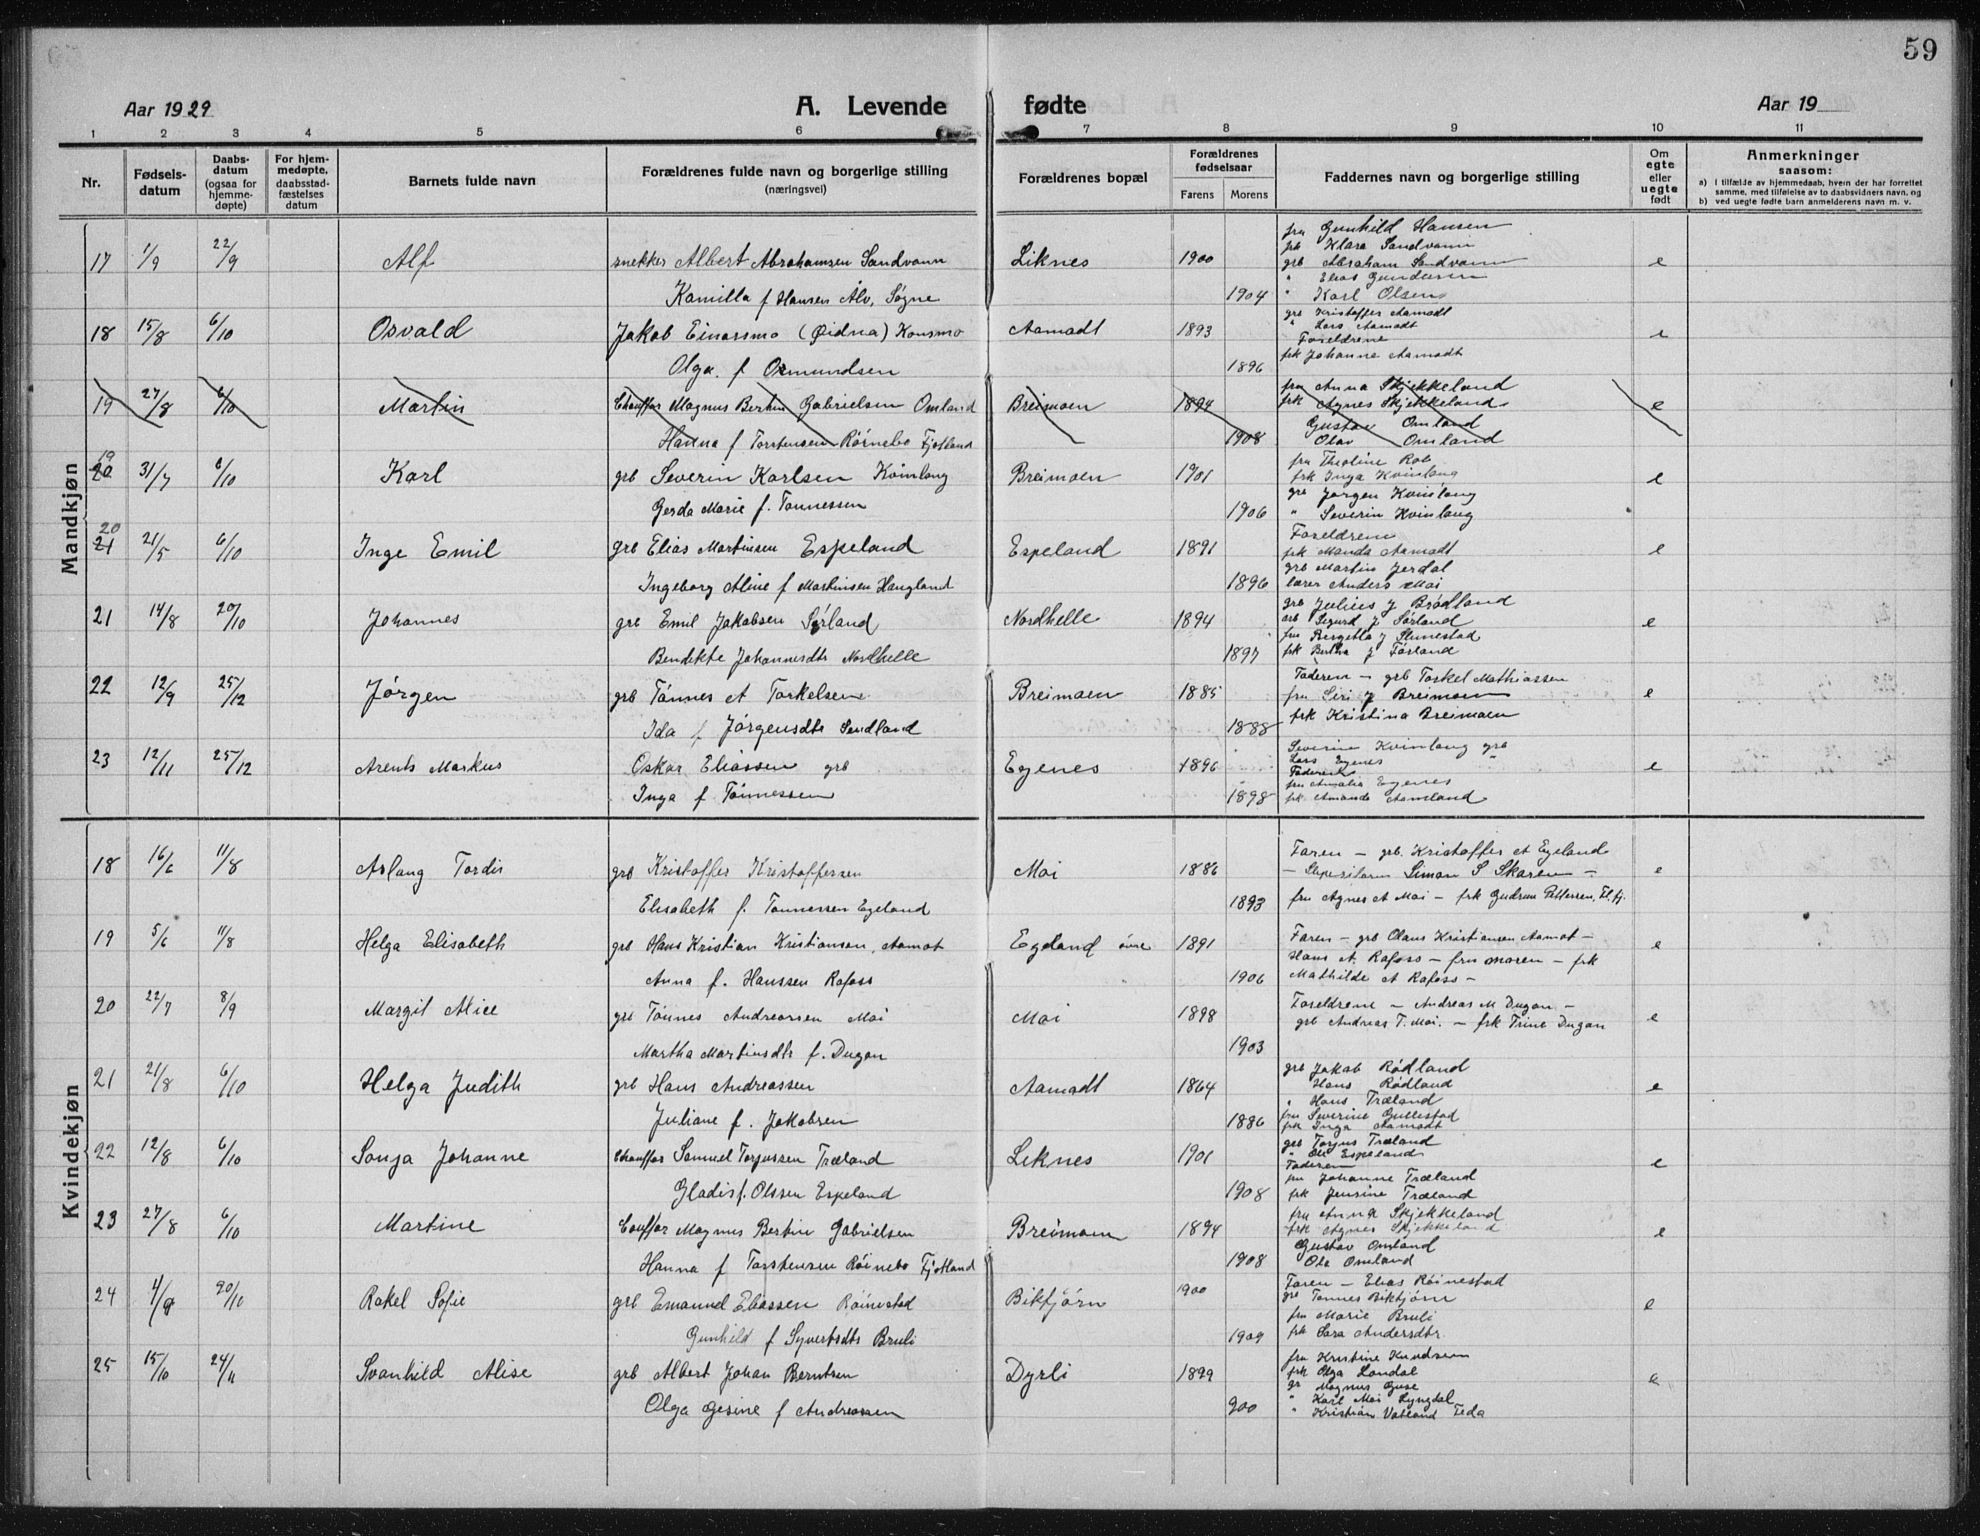 59
Aar 1929 A. Levende fødte Aar 19
1 2 3 4 5 6 7 8 9 10 11
Nr. Fødsels-datum Daabs-datum (ogsaa for hjemme-døpte) For hjem-medøpte, daabsstad-fæstelses datum Barnets fulde navn Forældrenes fulde navn og borgerlige stilling (næringsvei) Forældrenes bopæl Forældrenes fødselsaar Farens Morens Faddernes navn og borgerlige stilling Om egte eller uegte født Anmerkninger saasom:
a) i tilfælde av hjemmedaab, hvem der har forrettet samme, med tilføielse av to daabsvidners navn, og
b) ved uegte fødte barn anmelderens navn m. v.
Mandkjøn
fru Gunhild Hansen
frk Klara Sandvann
17 1/9 22/9 Alf snekker Albert Abrahamsen Sandvann Liknes 1900 grb Abraham Sandvann e
" Elias Gundersen
Kamilla f Hansen Alv, Søgne 1904 " Karl Olsen
grb Kristoffer Aamodt
18 15/8 6/10 Osvald Jakob Einarsmo (Øidna) Konsmo Aamodt 1893 " Lars Aamodt e
Foreldrene
Olga f Osmundsen 1896 frk Johanne Aamodt
fru Anna Skjekkeland
19 27/8 6/10 Martin Chauffør Magnus Bertin Gabrielsen Omland Breimoen 1894 frk Agnes Skjekkeland e
Gustav Omland
Hanna f Torstensen Rørnebo Fjotland 1908 Olav Omland
fru Theoline Roe
19 20 31/7 6/10 Karl grb Severin Karlsen Kvinlaug Breimoen 1901 frk Inga Kvinlaug e
grb Jørgen Kvinlaug
Gerda Marie f. Tønnessen 1906 " Severin Kvinlaug
20 21 21/5 6/10 Inge Emil grb Elias Martinsen Espeland Espeland 1891 Foreldrene e
frk Manda Aamodt
grb Martin Jerdal
Ingeborg Aline f Martinsen Haugland 1896 lærer Anders Moi
grb Julius J Brødland
21 14/8 20/10 Johannes grb Emil Jakobsen Sørland Nordhelle 1894 arb Sigurd J Sørland e
fru Bergitha J Stenestad
Bendikte Johannesdtr Nordhelle 1897 frk Bertha J Førland
22 12/9 25/12 Jørgen grb Tønnes A Torkelsen Breimoen 1885 Faderen – grb Torkel Mathiassen e
fru Siri J Breimoen
Ida f Jørgensdtr Sandland 1888 frk Kristina Breimoen
Severin Kvinlaug grb
23 12/11 25/12 Arents Markus Oskar Eliassen grb Egenes 1896 Lars Egenes " e
Faderen
fru Amalia Egenes
Inga f Tønnessen 1898 frk Amanda Aamland
Kvindekjøn
18 16/6 11/8 Aslaug Tordis grb Kristoffer Kristoffersen Moi 1886 Faren – grb. Kristoffer A Egeland e
– Simon S Skaren –
Elisabeth f. Tønnessen Egeland 1893 fru Agnes A Moi – frk Gudrun Pettersen, Fl.fj.
19 5/6 11/8 Helga Elisabeth grb Hans Kristian Kristiansen, Aamot Egeland øvre 1891 Faren – grb Olaus Kristiansen Aamot – e
Hans A. Rafoss – fru moren – frk
Anna f. Hanssen Rafoss 1906 Mathilde A Rafoss –
20 22/7 8/9 Margit Alice grb Tønnes Andreassen Moi Moi 1898 Foreldrene – Andreas M Dugan – e
grb Andreas T. Moi. – frk Trine Dugan
Martha Martinsdtr f. Dugan 1903
21 21/8 6/10 Helga Judith grb Hans Andreassen Aamodt 1864 grb Jakob Rødland e
Hans Rødland
" Hans Træland
Juliane f. Jakobsen 1886 fru Severine Gullestad
frk Inga Aamodt
22 12/8 6/10 Sonja Johanne Chauffør Samuel Torjussen Træland Liknes 1901 grb Torjus Træland e
" Ole Espeland
Faderen
fru Johanne Træland
Gladis f. Olssen Espeland 1908 frk Jensine Træland
23 27/8 6/10 Martine Couffør Magnus Bertin Gabrielsen Breimoen 1894 fru Anna Skjekkeland e
frk Agnes Skjekkeland
Gustav Omland
Hanna f Torstensen Røinebo Fjotland 1908 Ole Omland
24 4/9 20/10 Rakel Sofie grb Emanuel Eliassen Røinestad Bikfjørn 1900 Faren – Elias Røinestad e
grb Tønnes Bikfjørn
fru Marie Bruli
Gunhild f Syvertsdtr Bruli 1909 frk Sara Andersdtr.
25 15/10 24/11 Svanhild Alise grb Albert Johan Berntsen Dyrli 1899 fru Kristine Knudsen e
frk Olga Londal
gr Magnus Guse
Olga Gesine f Andreassen 900 " Karl Moi Lyngdal
" Kristian Vatland Feda